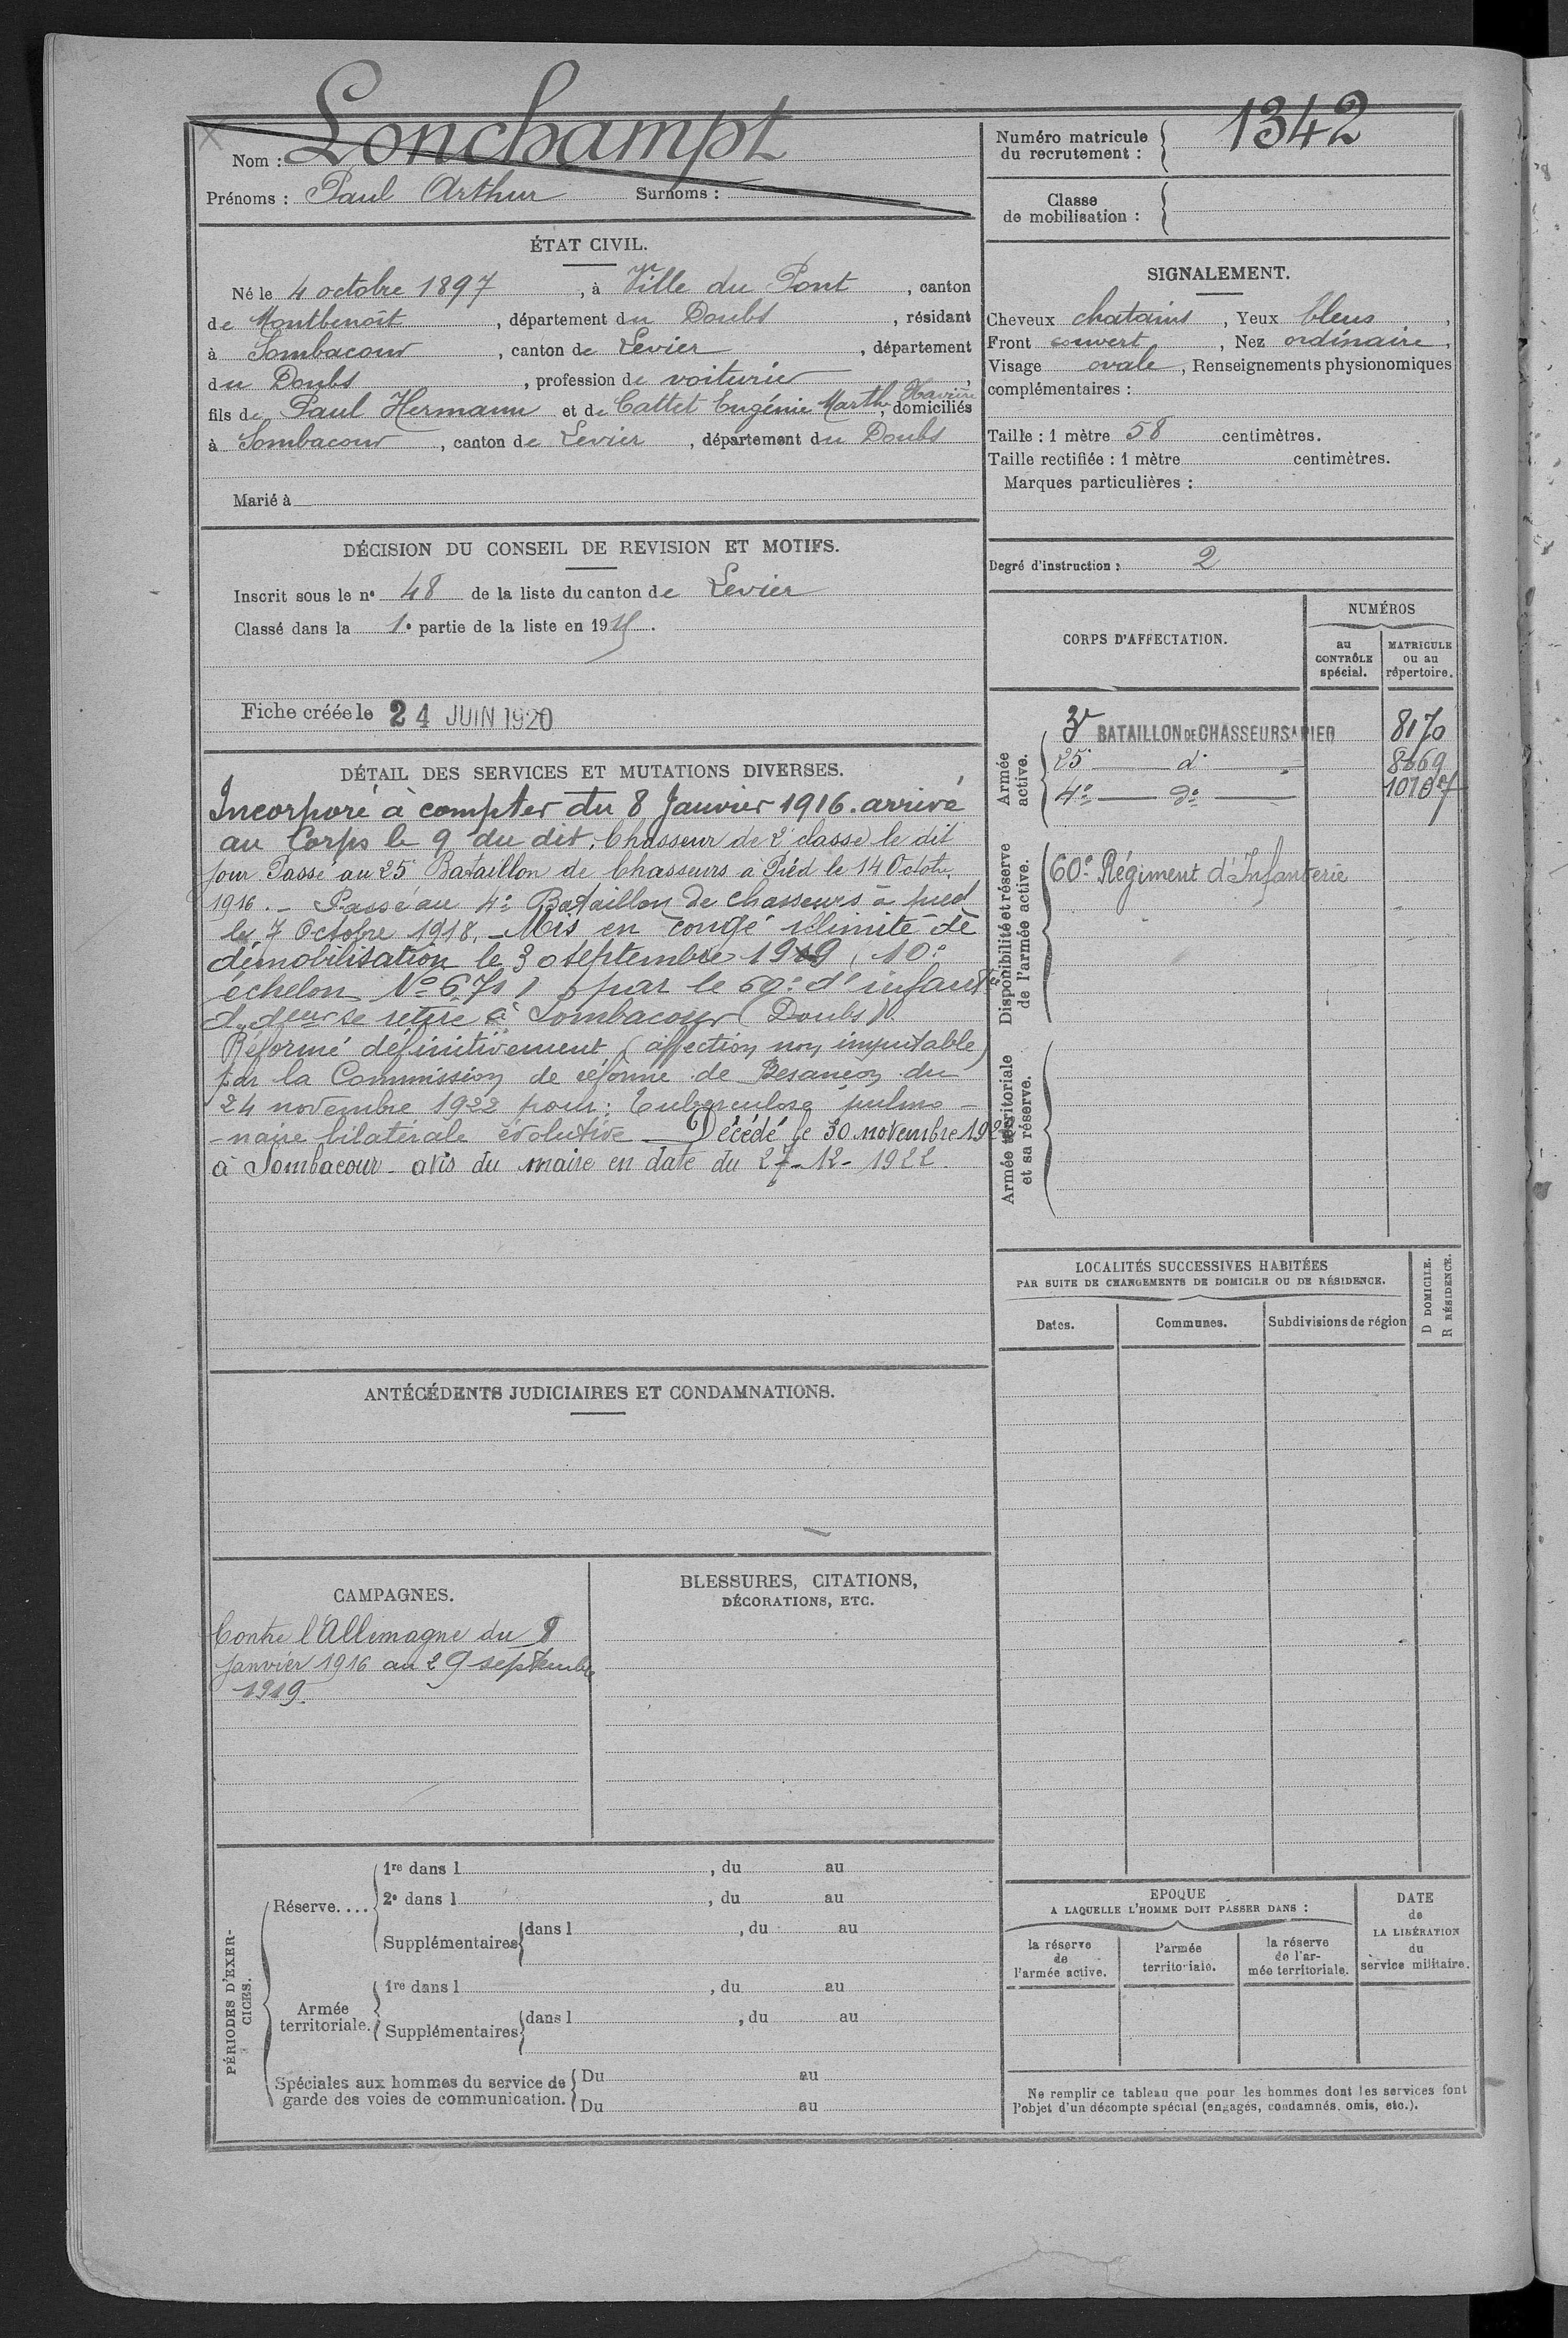 Nom : Lonchampt
Prénoms : Paul Arthur Surnoms :
ÉTAT CIVIL.
Né le 4 octobre 1897, à Ville du Pont, canton
de Montbenoît, département du Doubs, résidant
à Sombacour, canton de Levier, département
du Doubs, profession de voiturier,
fils de Paul Hermann et de Cattet Eugénie Marthe Xavière, domiciliés
à Sombacour, canton de Levier, département du Doubs
Marié à
DÉCISION DU CONSEIL DE REVISION ET MOTIFS.
Inscrit sous le n° 48 de la liste du canton de Levier
Classé dans la 1e partie de la liste en 1915.
Fiche créée le 24 JUIN 1920
DÉTAIL DES SERVICES ET MUTATIONS DIVERSES.
Incorporé à compter du 8 Janvier 1916. arrivé
au Corps le 9 du dit. Chasseur de 2e classe le dit
jour. Passé au 25e Bataillon de Chasseurs à Pied le 14 Octobre
1916. - Passé au 4e Bataillon de chasseurs à pied
le 7 Octobre 1918. - Mis en congé illimité de
démobilisation le 30 septembre 1919, 10e
échelon No 671 par le 60e d'infanterie
se retire à Sombacour (Doubs).
Réformé définitivement (affection non imputable)
par la Commission de réforme de Besançon du
24 novembre 1922 pour : Tuberculose pulmo-
-naire bilatérale évolutive - Décédé le 30 novembre 192
à Sombacour - avis du maire en date du 27-12-1922.
ANTÉCÉDENTS JUDICIAIRES ET CONDAMNATIONS.
CAMPAGNES.
Contre l'Allemagne du 8
Janvier 1916 au 29 septembre
1919.
BLESSURES, CITATIONS,
DÉCORATIONS, ETC.
PÉRIODES D'EXER-
CICES.
Réserve....
1re dans l , du au
2e dans l , du au
Supplémentaires dans l , du au
Armée
territoriale.
1re dans l , du au
Supplémentaires dans l , du au
Spéciales aux hommes du service de
garde des voies de communication.
Du au
Du au
Numéro matricule
du recrutement : 1342
Classe
de mobilisation :
SIGNALEMENT.
Cheveux chatains, Yeux bleus,
Front couvert, Nez ordinaire,
Visage ovale, Renseignements physionomiques
complémentaires :
Taille : 1 mètre 58 centimètres.
Taille rectifiée : 1 mètre centimètres.
Marques particulières :
Degré d'instruction : 2
CORPS D'AFFECTATION.
NUMÉROS
au
CONTRÔLE
spécial.
MATRICULE
ou au
répertoire.
Armée
active.
3e BATAILLON DE CHASSEURS A PIED 8170
25e d° 8669
4e d° 10107
Disponibilité et réserve
de l'armée active.
60e Régiment d'Infanterie
Armée territoriale
et sa réserve.
LOCALITÉS SUCCESSIVES HABITÉES
PAR SUITE DE CHANGEMENTS DE DOMICILE OU DE RÉSIDENCE.
D DOMICILE.
R RÉSIDENCE.
Dates.
Communes.
Subdivisions de région
EPOQUE
A LAQUELLE L'HOMME DOIT PASSER DANS :
la réserve
de
l'armée active.
l'armée
territoriale.
la réserve
de l'ar-
mée territoriale.
DATE
de
LA LIBÉRATION
du
service militaire.
Ne remplir ce tableau que pour les hommes dont les services font
l'objet d'un décompte spécial (engagés, condamnés, omis, etc.).